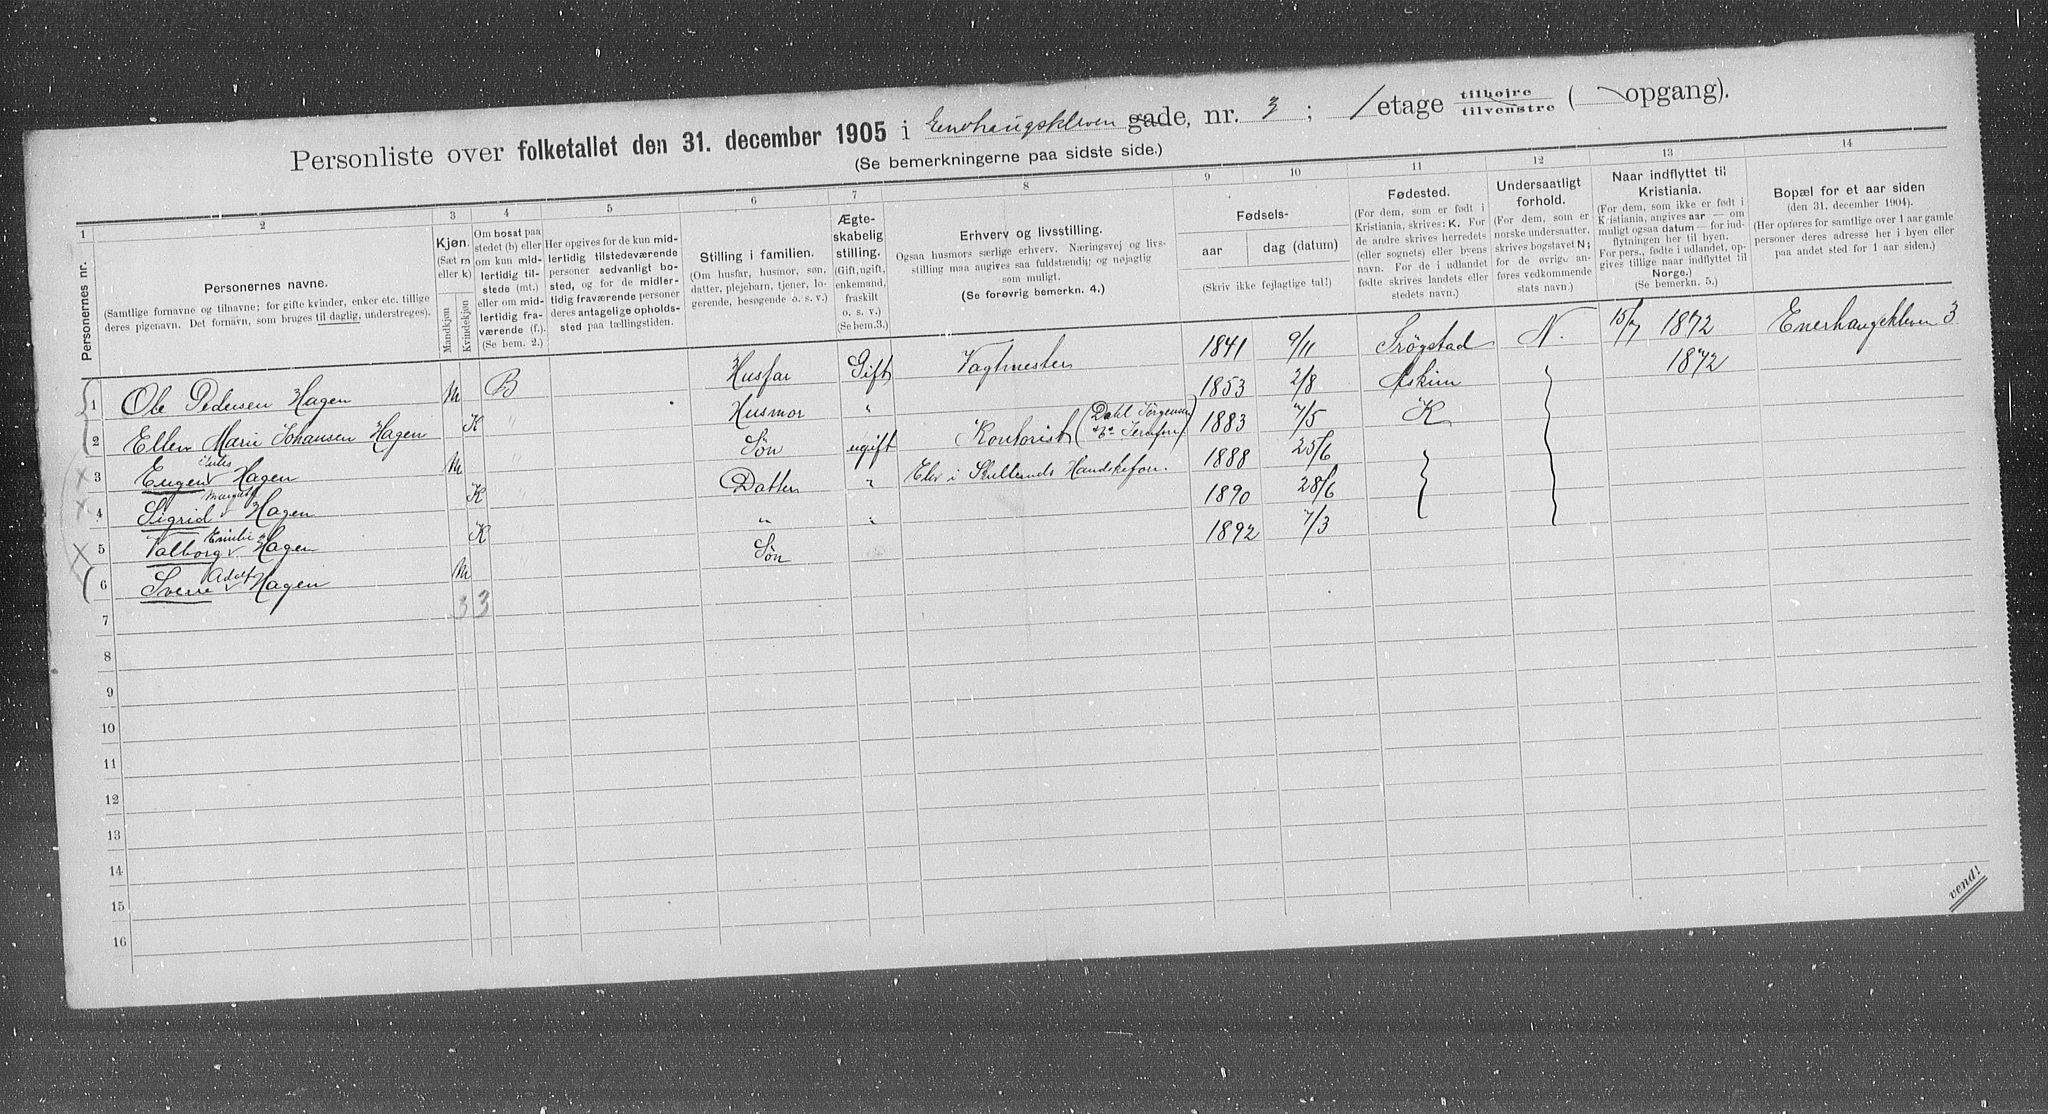 Personliste over folketallet den 31. december 1905 i Enerhaugskleven gade, nr. 3 ; 1 etage tilhøire tilvenstre ( opgang).
(Se bemerkningerne paa sidste side.)
1 2 3 4 5 6 7 8 9 10 11 12 13 14
Personernes nr.
Personernes navne.
(Samtlige fornavne og tilnavne; for gifte kvinder, enker etc. tillige
deres pigenavn. Det fornavn, som bruges til daglig, understreges).
Kjøn.
(Sæt m
eller k)
Mandkjøn
Kvindekjøn
Om bosat paa
stedet (b) eller
om kun mid-
lertidig til-
stede (mt.)
eller om mid-
lertidig fra-
værende (f.)
(Se bem. 2.)
Her opgives for de kun mid-
lertidig tilstedeværende
personer sedvanligt bo-
sted, og for de midler-
tidig fraværende personer
deres antagelige opholds-
sted paa tællingstiden.
Stilling i familien.
(Om husfar, husmor, søn,
datter, plejebarn, tjener, lo-
gerende, besøgende o. s. v.)
Ægte-
skabelig
stilling.
(Gift, ugift,
enkemand,
fraskilt
o. s. v.)
(Se bem.3.)
Erhverv og livsstilling.
Ogsaa husmors særlige erhverv. Næringsvej og livs-
stilling maa angives saa fuldstændig og nøjagtig
som muligt.
(Se forøvrig bemerkn. 4.)
Fødsels-
aar
dag (datum)
(Skriv ikke fejlagtige tal!)
Fødested.
(For dem, som er født i
Kristiania, skrives: K. For
de andre skrives herredets
(eller sognets) eller byens
navn. For de i udlandet
fødte skrives landets eller
stedets navn.)
Undersaatligt
forhold.
(For dem, som er
norske undersaatter,
skrives bogstavet N;
for de øvrige an-
føres vedkommende
stats navn.)
Naar indflyttet til
Kristiania.
(For dem, som ikke er født i
Kristiania, angives aar — om
muligt ogsaa datum — for ind-
flytningen her til byen.
For pers., fødte i udlandet, op-
gives tillige naar indflyttet til
Norge.)
(Se bemerkn. 5.)
Bopæl for et aar siden
(den 31. december 1904).
(Her opføres for samtlige over 1 aar gamle
personer deres adresse her i byen eller
paa andet sted for 1 aar siden.)
1 Ole Pedersen Hagen m B Husfar Gift Vagtmester 1841 9/11 Trögstad N. 15/7 1872 Enerhaugskleven 3
2 Ellen Marie Johansen Hagen K " Husmor " 1853 2/8 Askim 1872
3 Eugen Hagen m " Søn ugift Kontorist (Dahl Jørgensen 1883 7/5 K
4 Sigrid Margrete Hagen K " Datter " Elev i Handskeforr. 1888 25/6
5 Valborg Emilie Hagen K " " " 1890 28/6
6 Sverre Adolf Hagen m " Søn 1892 7/3
7 3 3
8
9
10
11
12
13
14
15
16
vend!